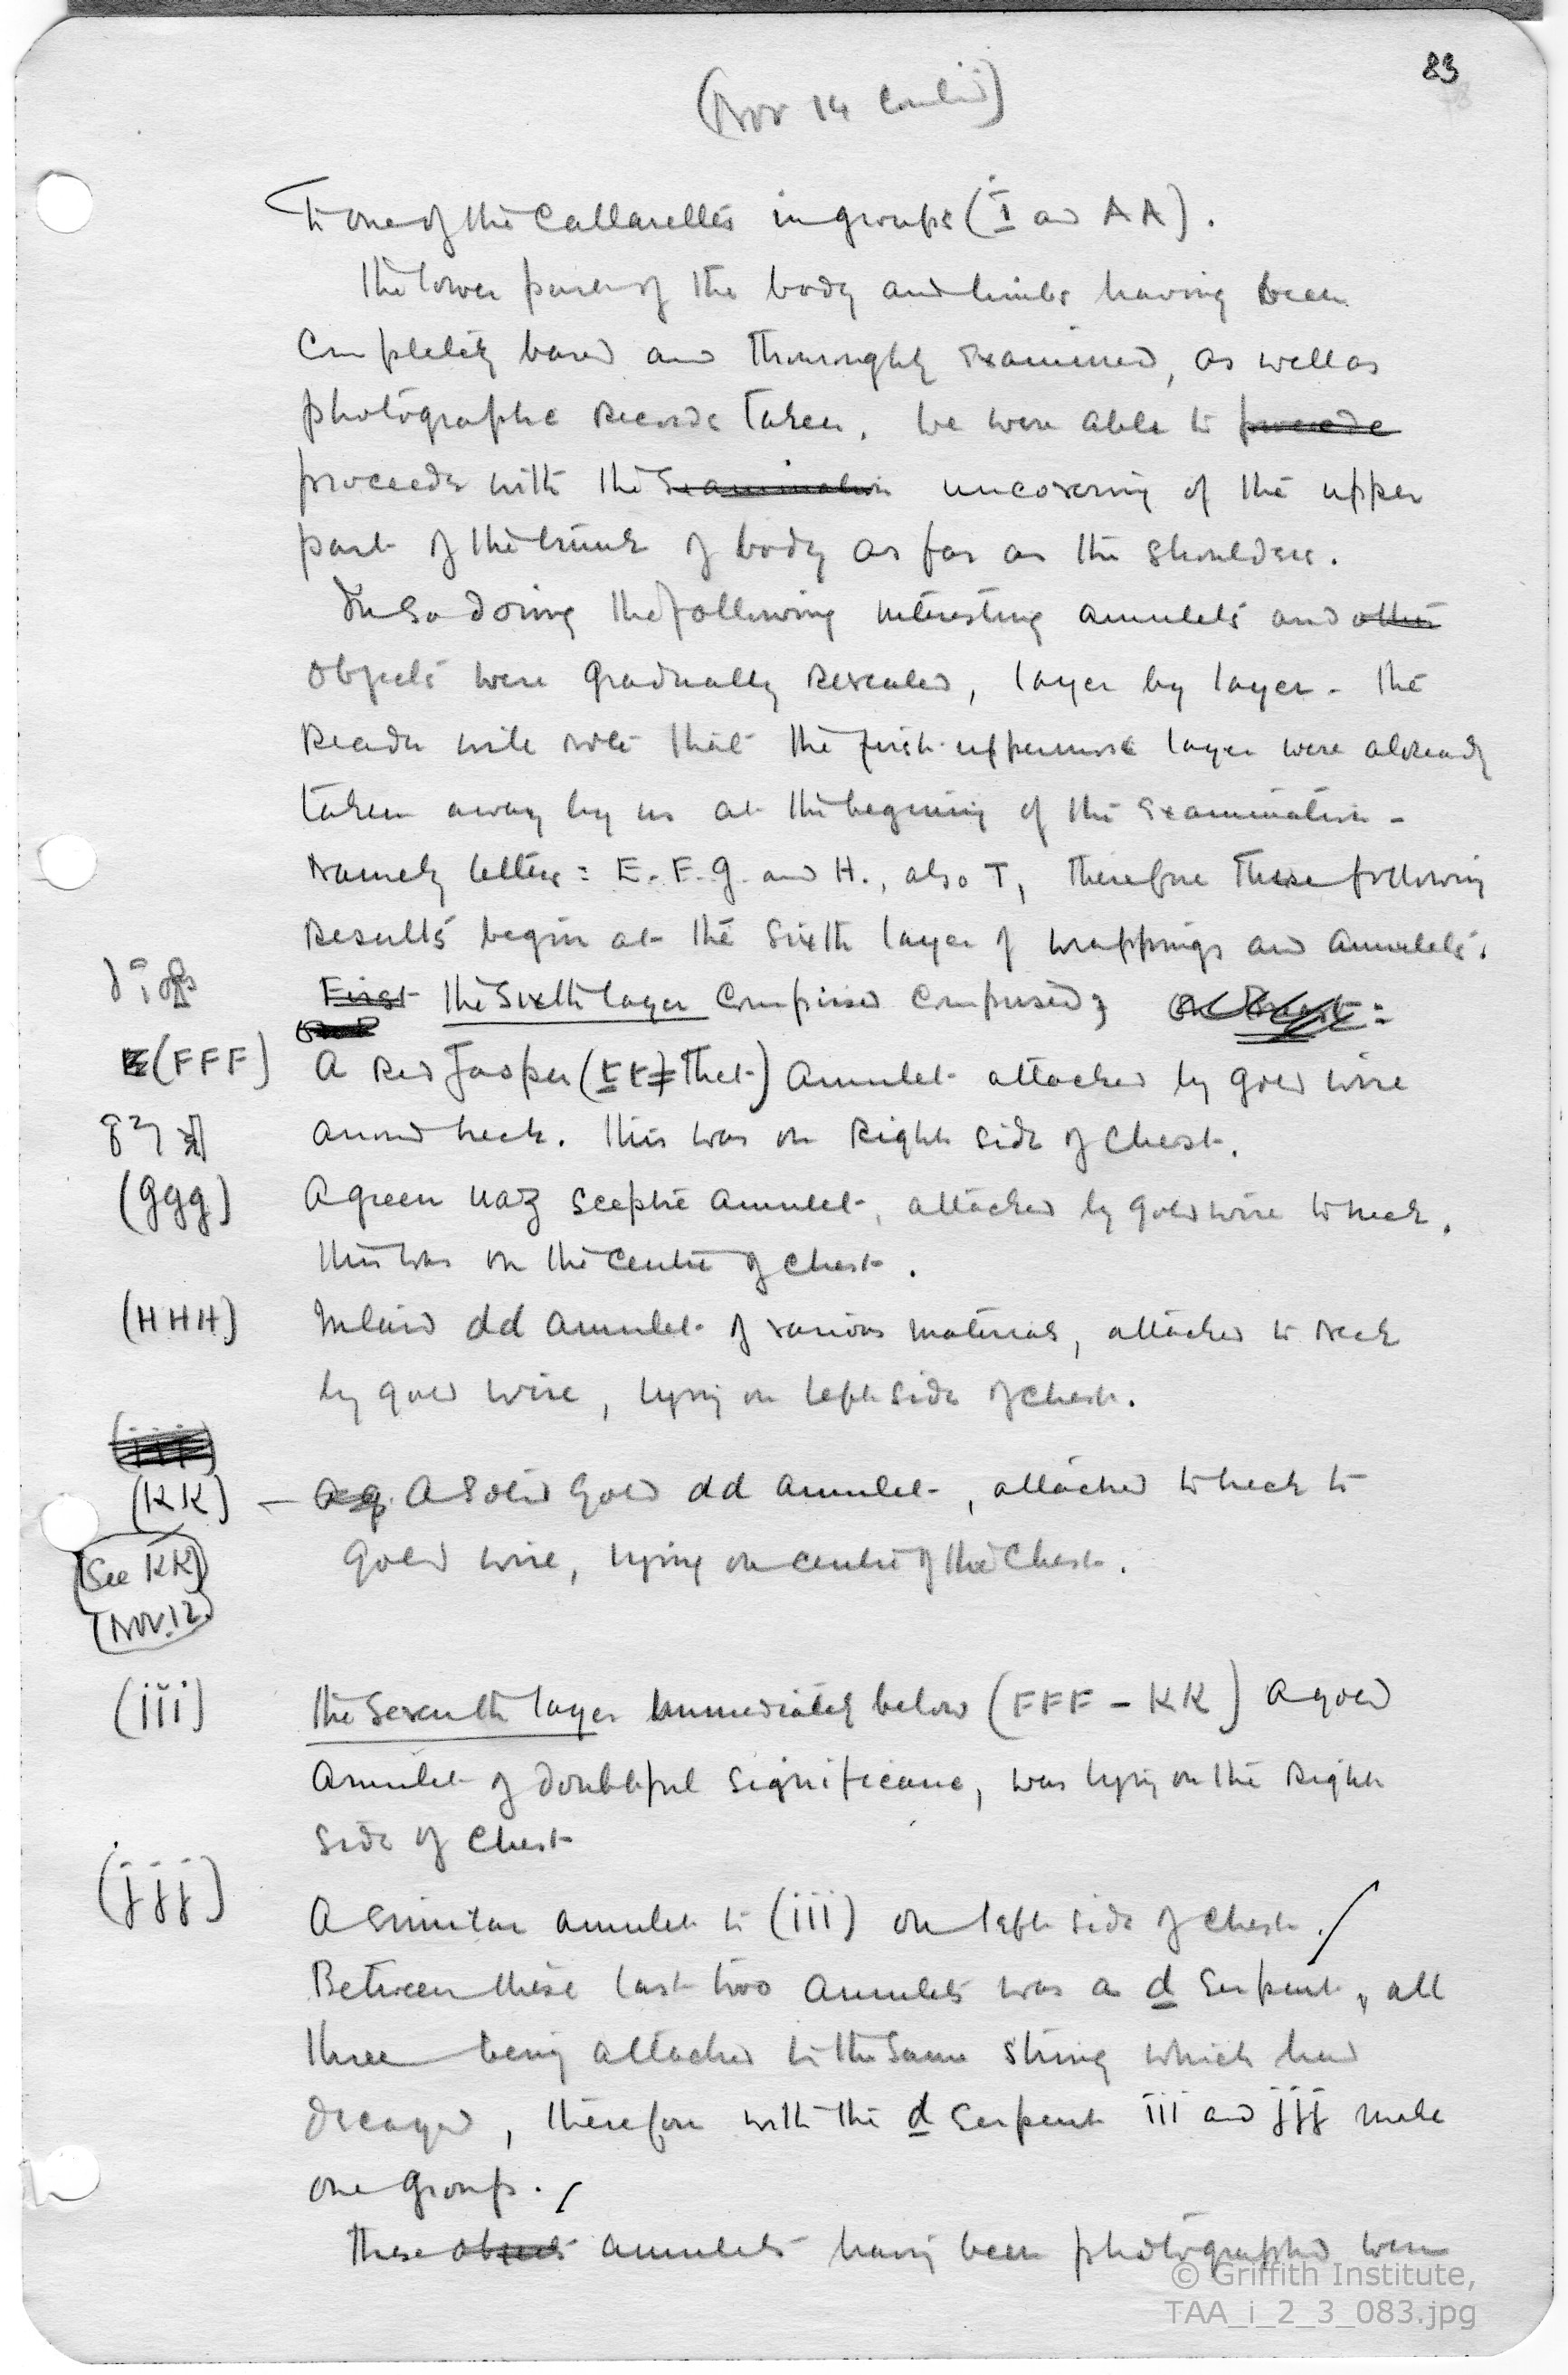 83
(Nov 14 Contd)
to one of the Collarettes in groups (I and AA).
The lower part of the body and limbs having been
completely bared and thoroughly examined, as well as
photographic records taken, we were able to procede
proceede with the examination uncovering of the upper
part of the trunk of body as far as the shoulders.
In so doing the following interesting amulets and other
objects were gradually revealed, layer by layer. The
Reader will note that the first uppermost layer were already
taken away by us at the begining of the examination -
Namely letters: E. F. G. and H., also T, therefore these following
Results begin at the sixth layer of wrappings and amulets.
First the Sixth layer comprised composed;
(FFF) A Red Jasper (Thet) Amulet attached by gold wire
around neck. This was on Right side of chest.
(ggg) A green uaz sceptre amulet, attached by gold wire to neck.
This was on the centre of chest.
(HHH) Inlaid dd amulet of various materials, attached to neck
by gold wire, lying on left side of chest.
(iii)
(KK) - A solid gold dd amulet, attached to neck to
gold wire, lying on centre of the chest.
(See KK)
(Nov. 12)
(iii) The Seventh layer Immediately below (FFF - KK) A gold
Amulet of doubtful significance, was lying on the Right
side of chest
(jjj) A similar amulet to (iii) on left side of chest.
Between these last two amulets was a d serpent, all
three being attached to the same string which had
decayed, therefore with the d serpent iii and jjj make
one group.
These objects amulets having been photographed were
© Griffith Institute,
TAA_i_2_3_083.jpg